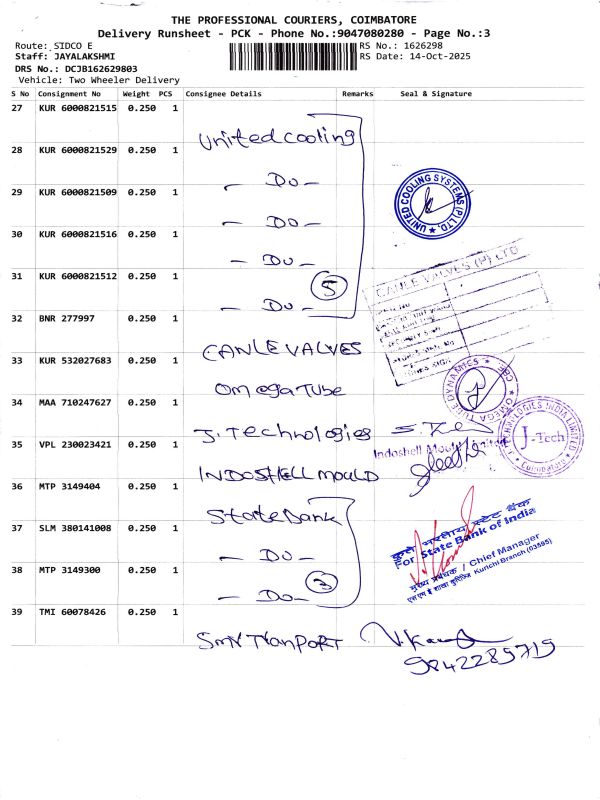 THE PROFESSIONAL COURIERS, COIMBATORE
Delivery Runsheet - PCK - Phone No.:9047080280 - Page No.:3
Route: SIDCO E
RS No.: 1626298
Staff: JAYALAKSHMI
RS Date: 14-Oct-2025
DRS No.: DCJB162629803
Vehicle: Two Wheeler Delivery
S No Consignment No Weight PCS Consignee Details Remarks Seal & Signature
27 KUR 6000821515 0.250 1
United cooling
28 KUR 6000821529 0.250 1
- Do -
29 KUR 6000821509 0.250 1
- Do -
UNITED COOLING SYSTEMS (P) LTD.
30 KUR 6000821516 0.250 1
- Do -
31 KUR 6000821512 0.250 1
5
- Do -
CANLE VALVES (P) LTD
32 BNR 277997 0.250 1
CANLE VALVES
33 KUR 532027683 0.250 1
Omega Tube
OMEGA TUBE DYNAMICS CBE
34 MAA 710247627 0.250 1
J. Technologies
J-TECHNOLOGIES INDIA LIMITED
J-Tech
Coimbatore
35 VPL 230023421 0.250 1
Indoshell Mould Limited
INDOSHELL MOULD
36 MTP 3149404 0.250 1
State Bank
37 SLM 380141008 0.250 1
- Do -
कृते भारतीय स्टेट बैंक
For State Bank of India
38 MTP 3149300 0.250 1
3
- Do -
मुख्य प्रबंधक / Chief Manager
Kurichi Branch (03595)
39 TMI 60078426 0.250 1
SMV TranPORT
9842289719